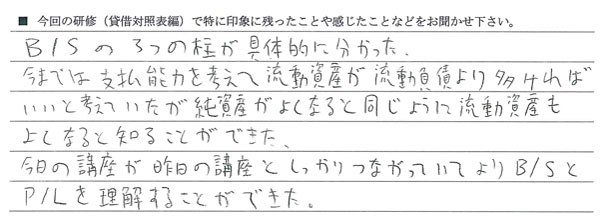 ■ 今回の研修（貸借対照表編）で特に印象に残ったことや感じたことなどをお聞かせ下さい。
B/Sの3つの柱が具体的に分かった。
今までは支払能力を考えて流動資産が流動負債より多ければ
いいと考えていたが純資産がよくなると同じように流動資産も
よくなると知ることができた。
今日の講座が昨日の講座としっかりつながっていてよりB/Sと
P/Lを理解することができた。